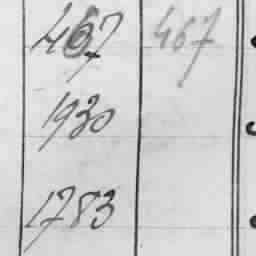 467 467
1930
1783